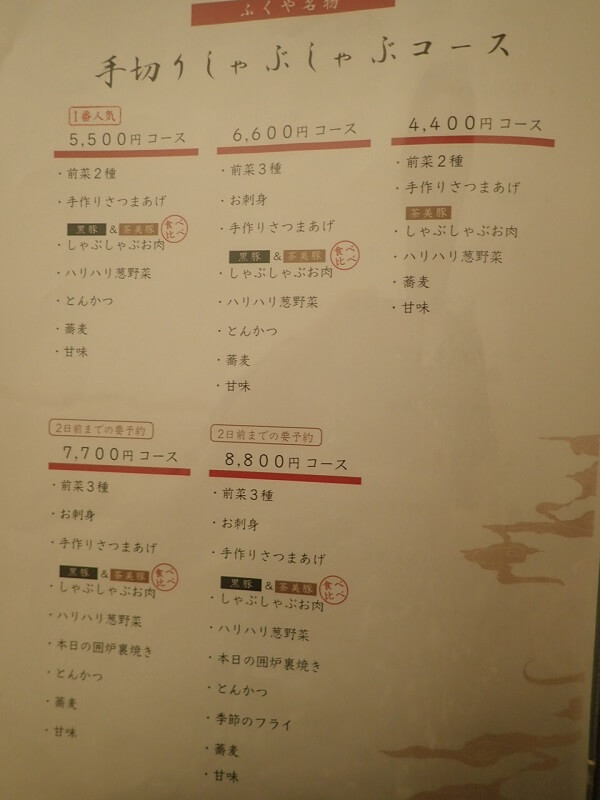 ふくや名物
手切りしゃぶしゃぶコース
1番人気
5,500円コース
・前菜2種
・手作りさつまあげ
黒豚&茶美豚 食べ比べ
・しゃぶしゃぶお肉
・ハリハリ葱野菜
・とんかつ
・蕎麦
・甘味
6,600円コース
・前菜3種
・お刺身
・手作りさつまあげ
黒豚&茶美豚 食べ比べ
・しゃぶしゃぶお肉
・ハリハリ葱野菜
・とんかつ
・蕎麦
・甘味
4,400円コース
・前菜2種
・手作りさつまあげ
茶美豚
・しゃぶしゃぶお肉
・ハリハリ葱野菜
・蕎麦
・甘味
2日前までの要予約
7,700円コース
・前菜3種
・お刺身
・手作りさつまあげ
黒豚&茶美豚 食べ比べ
・しゃぶしゃぶお肉
・ハリハリ葱野菜
・本日の囲炉裏焼き
・とんかつ
・蕎麦
・甘味
2日前までの要予約
8,800円コース
・前菜3種
・お刺身
・手作りさつまあげ
黒豚&茶美豚 食べ比べ
・しゃぶしゃぶお肉
・ハリハリ葱野菜
・本日の囲炉裏焼き
・とんかつ
・季節のフライ
・蕎麦
・甘味